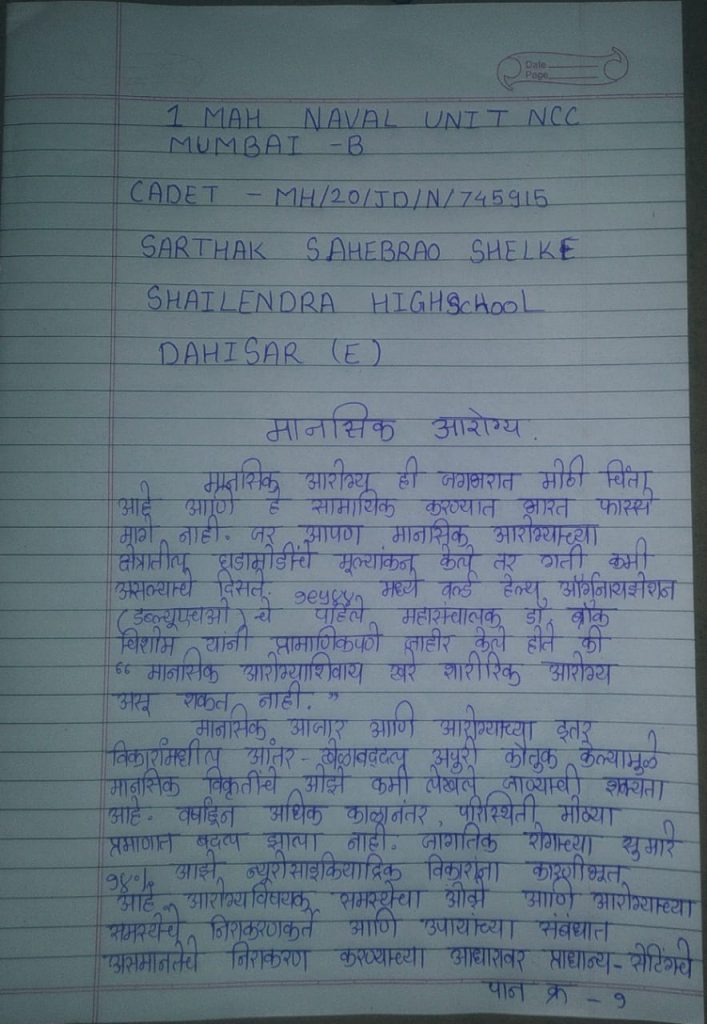 Date
Page
1 MAH NAVAL UNIT NCC
MUMBAI -B
CADET - MH/20/JD/N/745915
SARTHAK SAHEBRAO SHELKE
SHAILENDRA HIGHSCHOOL
DAHISAR (E)
मानसिक आरोग्य.
मानसिक आरोग्य ही जगभरात मोठी चिंता
आहे आणि हे सामायिक करण्यात भारत फारसे
मागे नाही. जर आपण मानसिक आरोग्याच्या
क्षेत्रातील घडामोडींचे मूल्यांकन केले तर गती कमी
असल्याचे दिसते. मध्ये वर्ल्ड हेल्थ ऑर्गनायझेशन
(डब्ल्यूएचओ) चे पहिले महासंचालक डॉ ब्रॉक
चिशोम यांनी प्रामाणिकपणे जाहीर केले होते की
" मानसिक आरोग्याशिवाय खरे शारीरिक आरोग्य
असू शकत नाही. "
मानसिक आजार आणि आरोग्याच्या इतर
विकारांमधील आंतर- खेळाबद्दल अपुरी कौतुक केल्यामुळे
मानसिक विकृतींचे ओझे कमी लेखले जाण्याची शक्यता
आहे. वर्षाहून अधिक काळानंतर, परिस्थिती मोठ्या
प्रमाणात बदल झाला नाही. जागतिक रोगाच्या सुमारे
१४% ओझे न्यूरोसाइकियाट्रिक विकारांना कारणीभूत
आहे. आरोग्यविषयक समस्येचा ओझे आणि आरोग्याच्या
समस्येचे निराकरणकर्ते आणि उपायांच्या संबंधात
असमानतेचे निराकरण करण्याच्या आधारावर प्राधान्य-सेटिंगचे
पान क्र - १